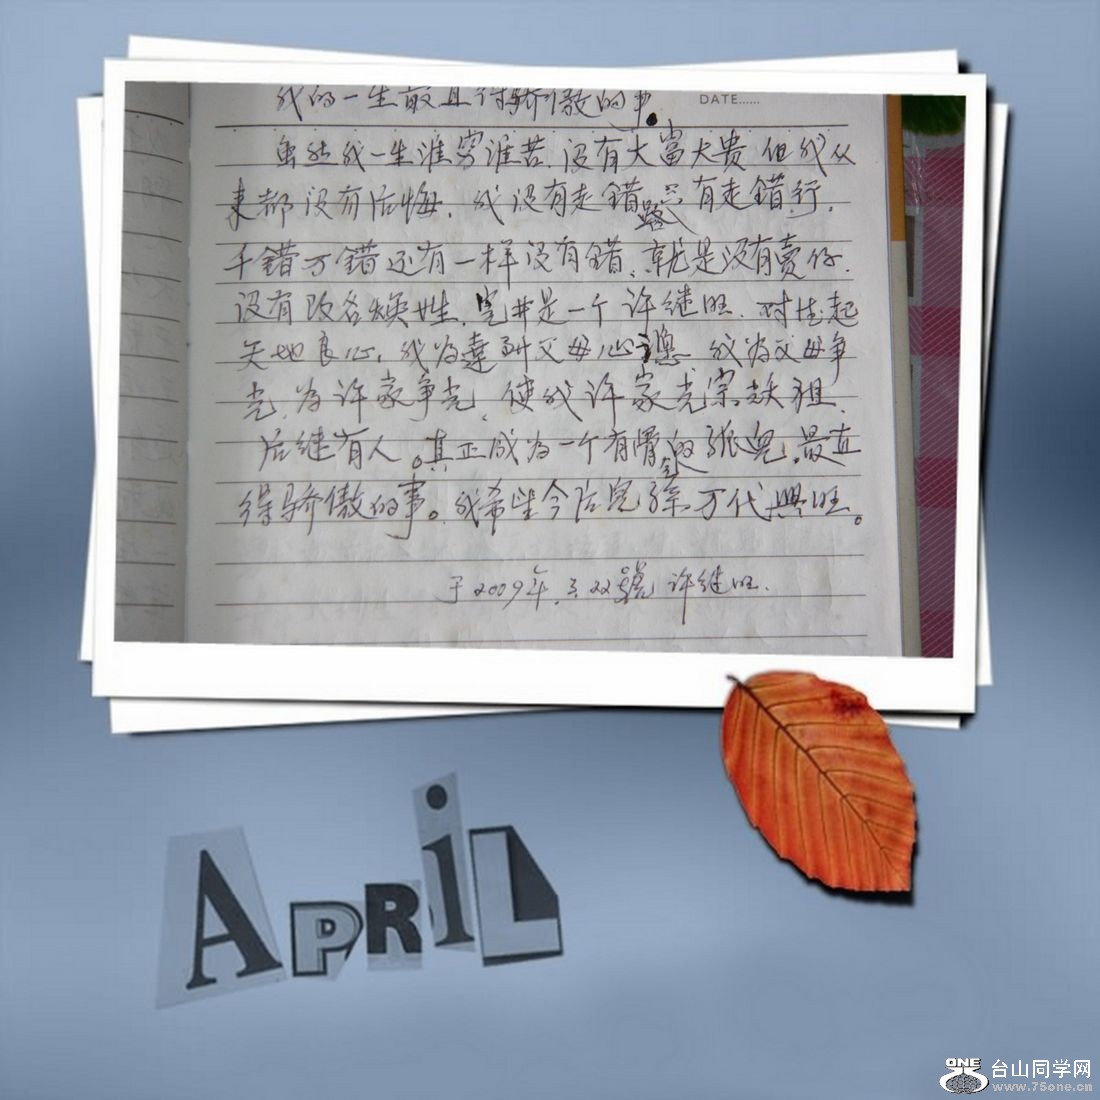 我的一生最且得骄傲的事。
DATE......
虽然我一生谁穷谁苦.没有大富大贵.但我从
来都没有后悔.我没有走错路只有走错行.
千错万错还有一样没有错、就是没有賣仔.
没有改名焕姓.完井是一个许继旺.对住起
天地良心,我为達到父母心愿 我为父母争
光,为许家争光、使我许家光宗耀祖.
后继有人。真正成为一个有骨的孤儿.最直
得骄傲的事。我希望今后児孫万代興旺。
于2009年.3.22號 许继旺.
APRiL
ONE 台山同学网
www.75one.cn